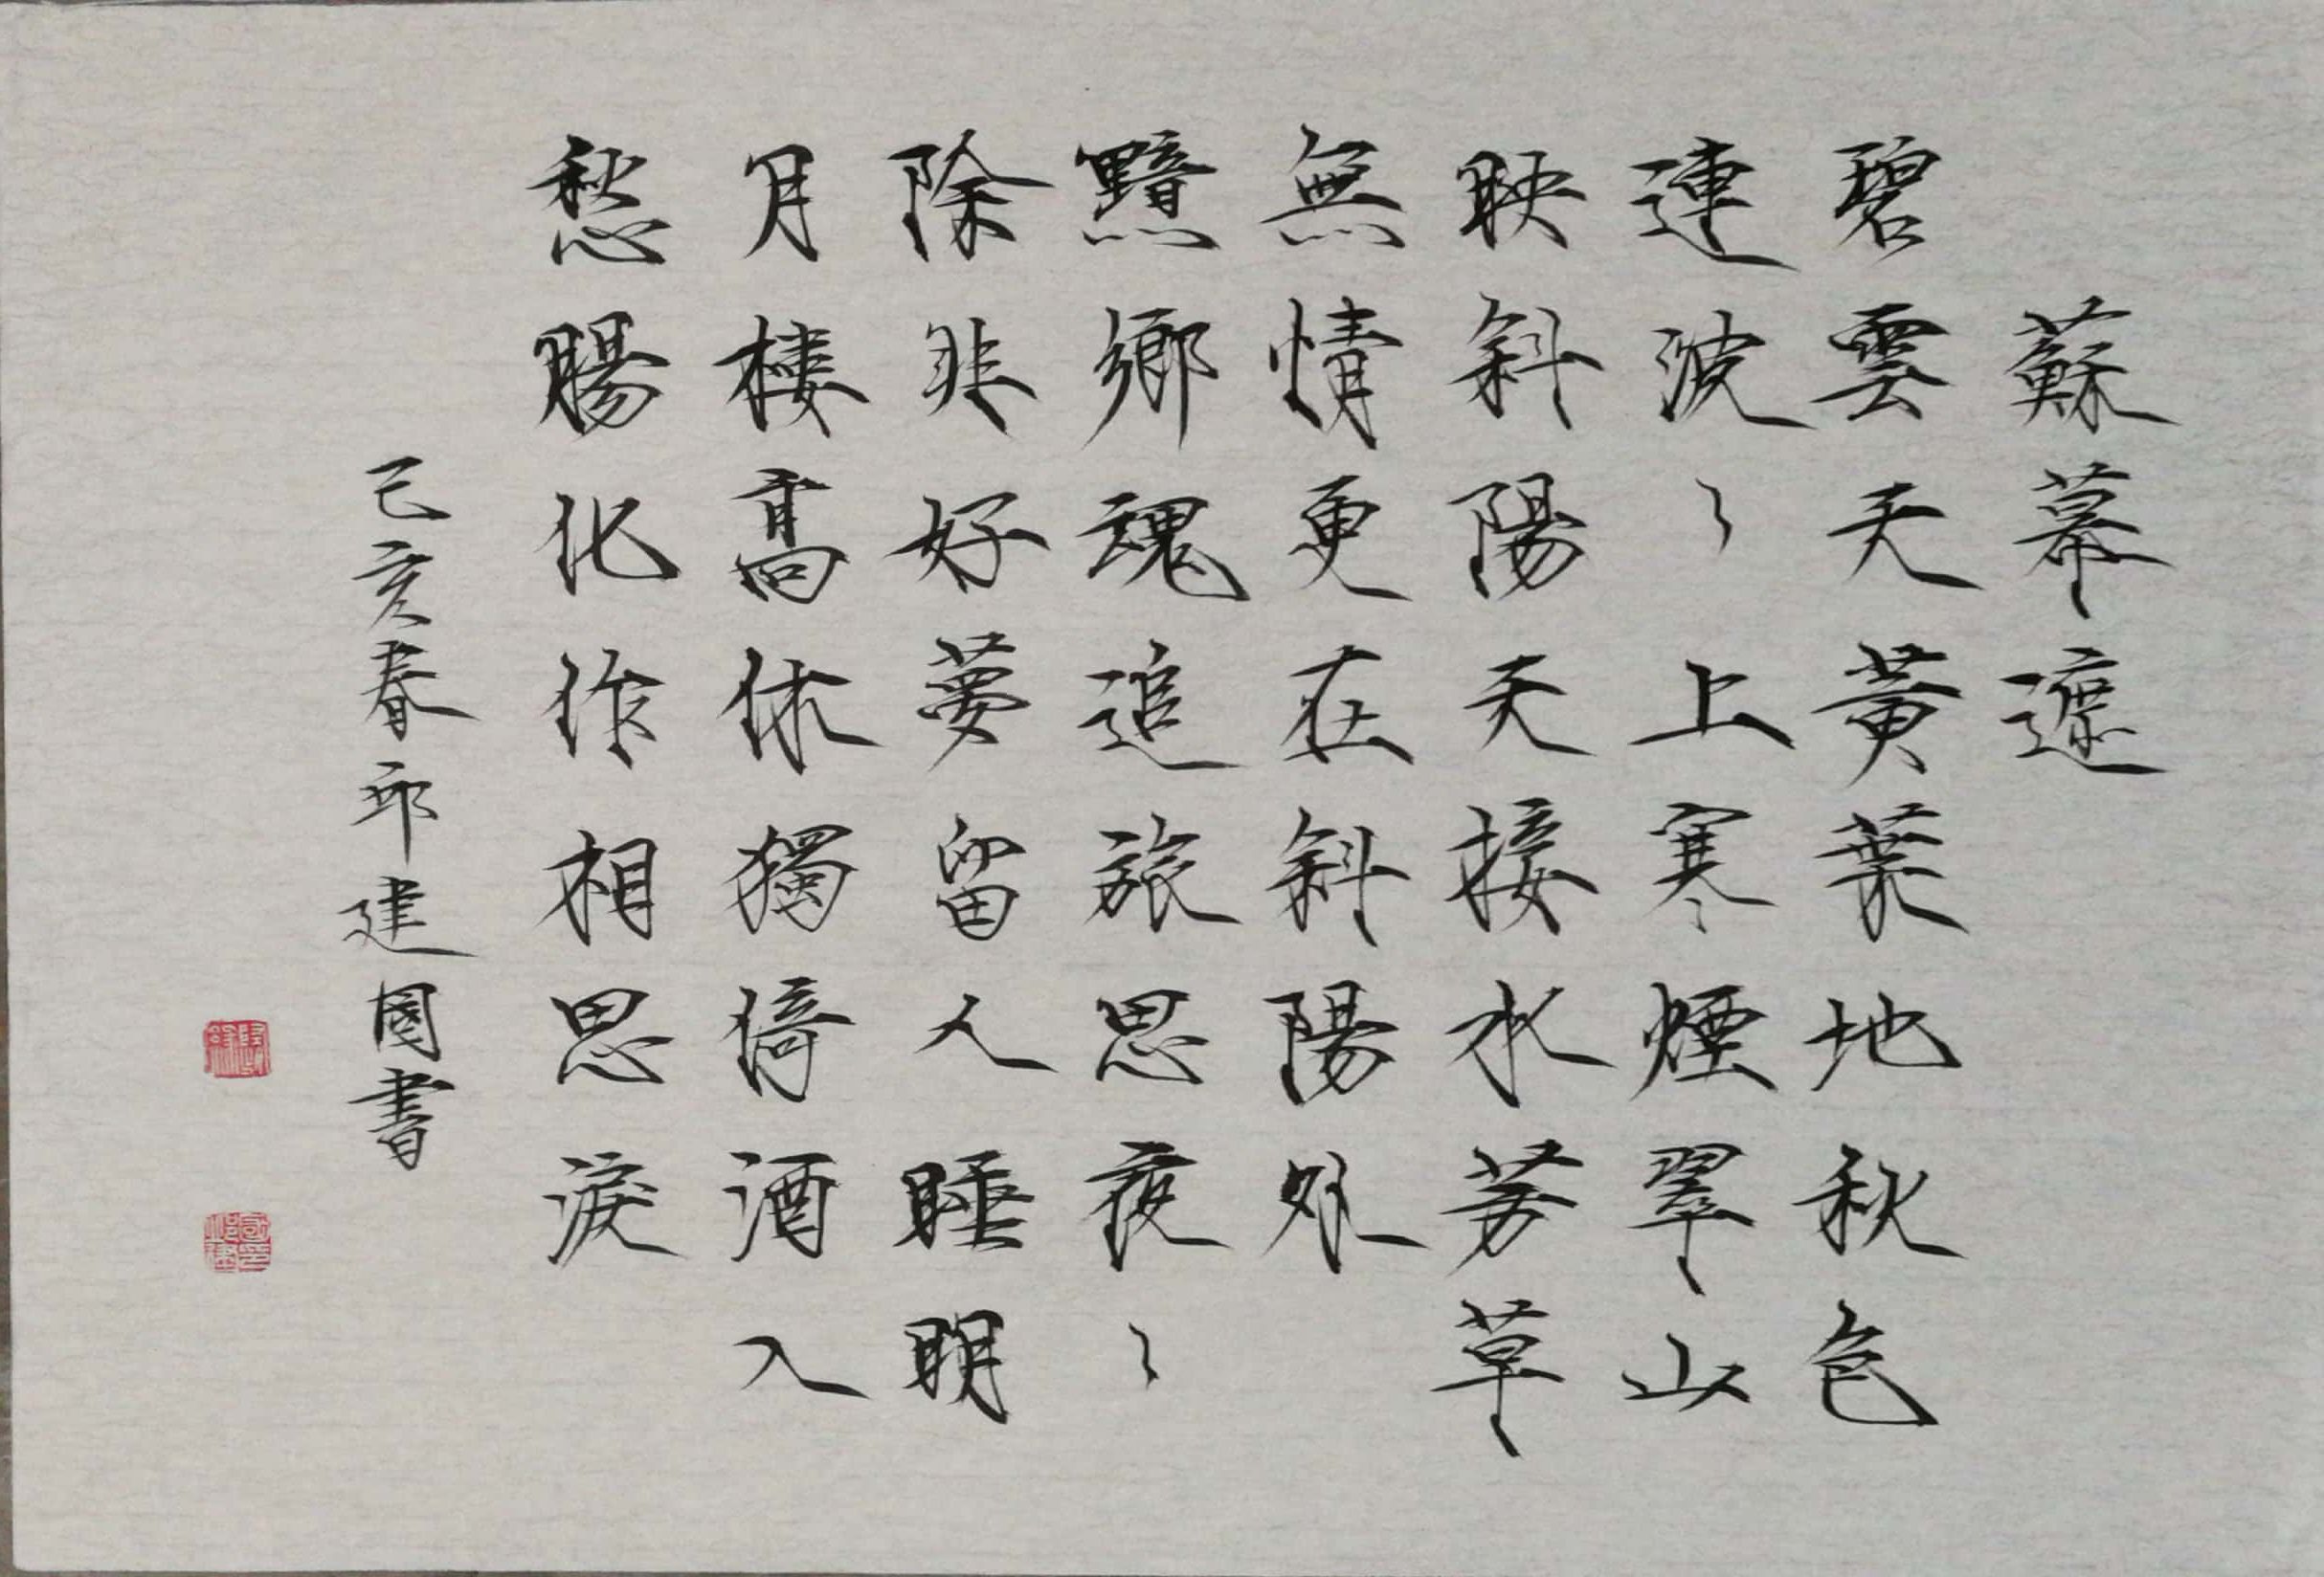 蘇幕遮
碧雲天黃葉地秋色
連波〻上寒煙翠山
映斜陽天接水芳草
無情更在斜陽外
黯鄉魂追旅思夜〻
除非好夢留人睡明
月樓高休獨倚酒入
愁腸化作相思淚
己亥春邱建國書